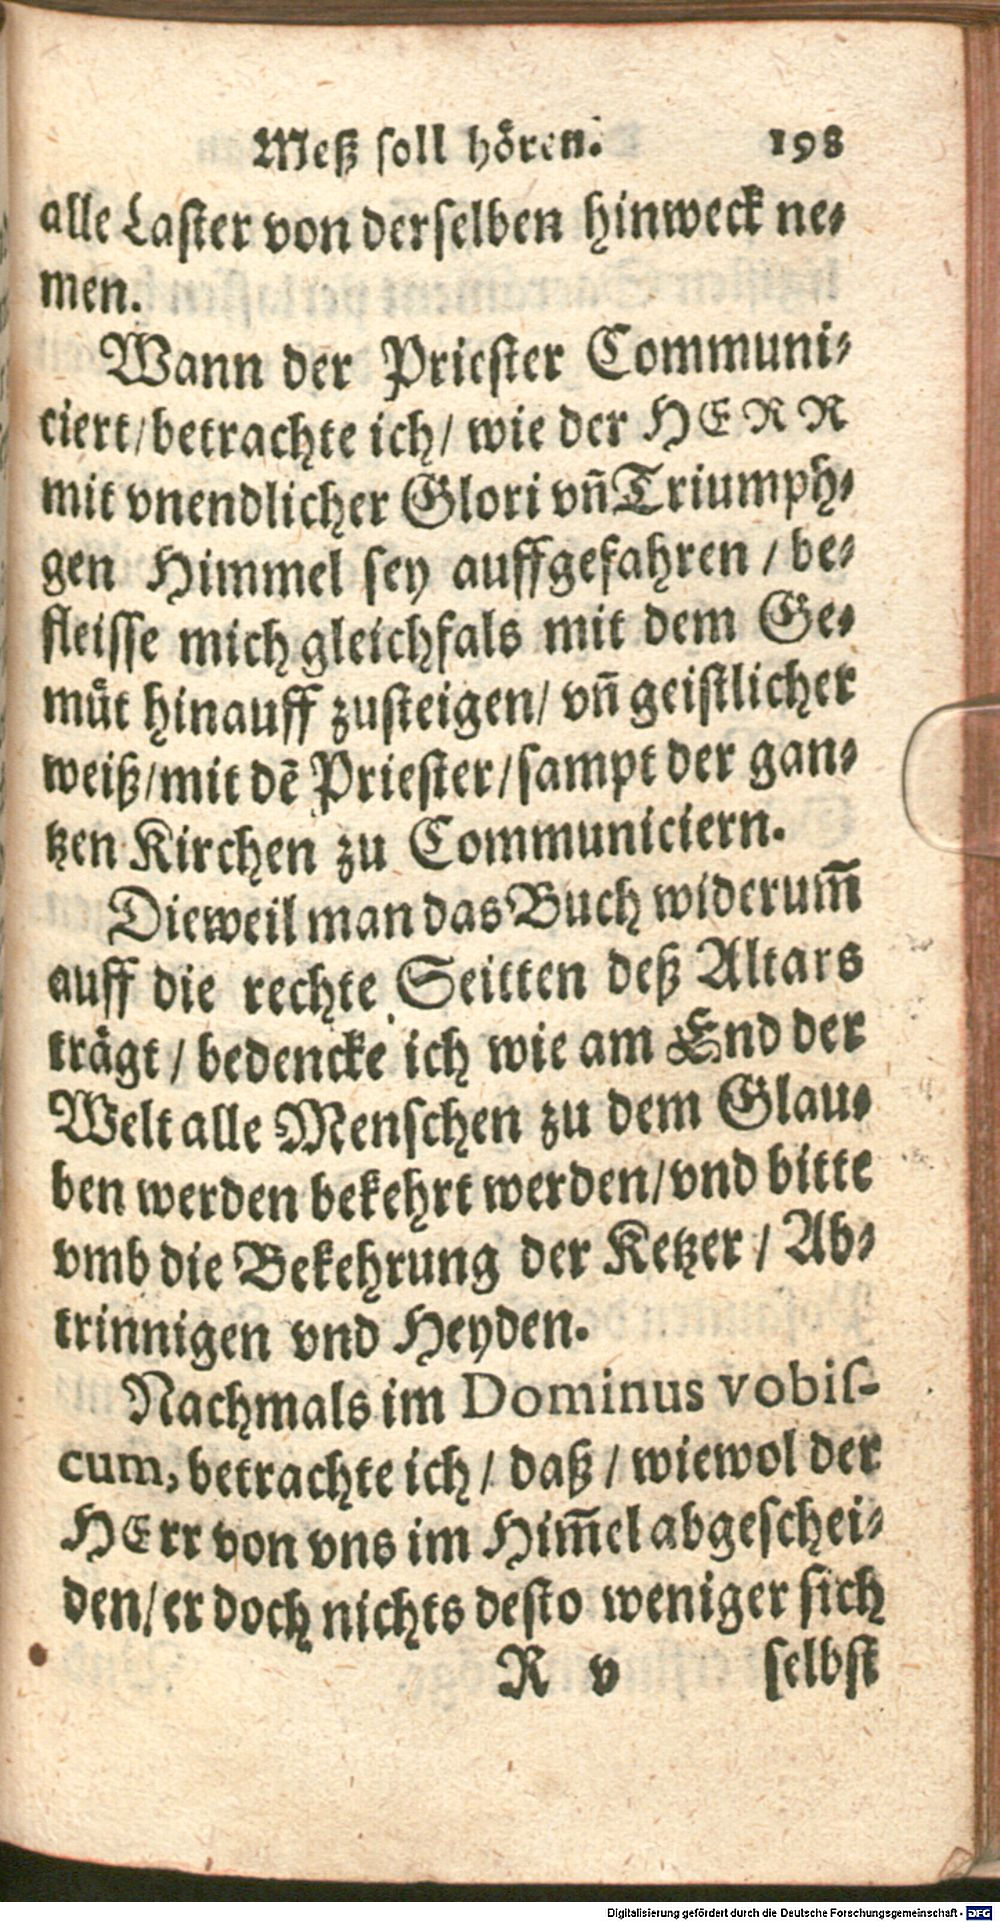 Meß soll hören. 198
alle Laster von derselben hinweck ne⸗
men.
Wann der Priester Communi⸗
ciert/betrachte ich/ wie der HERR
mit vnendlicher Glori vñ Triumph⸗
gen Himmel sey auffgefahren / be⸗
fleisse mich gleichfals mit dem Ge⸗
müt hinauff zusteigen/ vñ geistlicher
weiß/mit dē Priester/sampt der gan⸗
tzen Kirchen zu Communiciern.
Dieweil man das Buch widerum̄
auff die rechte Seitten deß Altars
trägt / bedencke ich wie am End der
Welt alle Menschen zu dem Glau⸗
ben werden bekehrt werden/vnd bitte
vmb die Bekehrung der Ketzer / Ab⸗
trinnigen vnd Heyden.
Nachmals im Dominus vobiſ-
cum, betrachte ich / daß / wiewol der
HErr von vns im Him̄el abgeschei⸗
den/ er doch nichts desto weniger sich
R v selbst
Digitalisierung gefördert durch die Deutsche Forschungsgemeinschaft - DFG